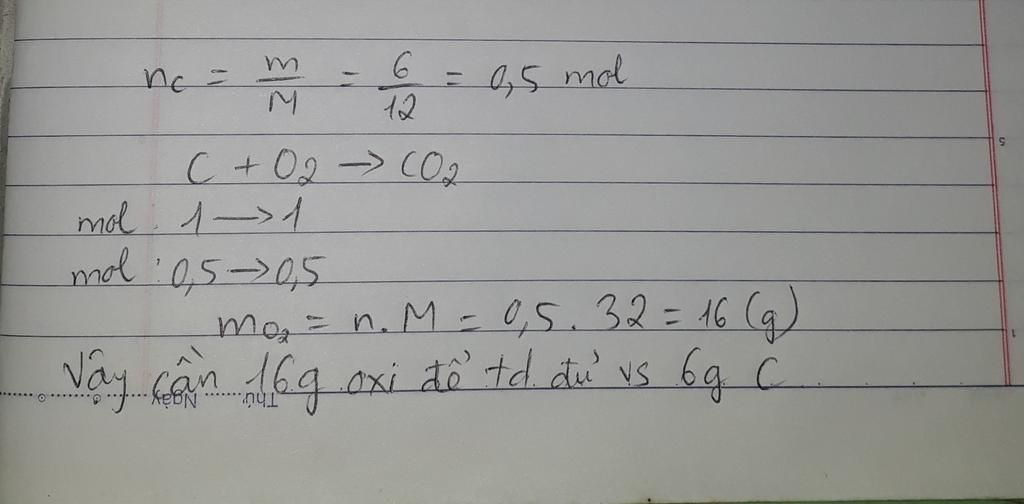 nc = m/M = 6/12 = 0,5 mol
C + O2 → CO2
mol : 1 → 1
mol : 0,5 → 0,5
mO2 = n.M = 0,5 . 32 = 16 (g)
Vậy cần 16g oxi để td đủ vs 6g C
Thứ Ngày
5
1